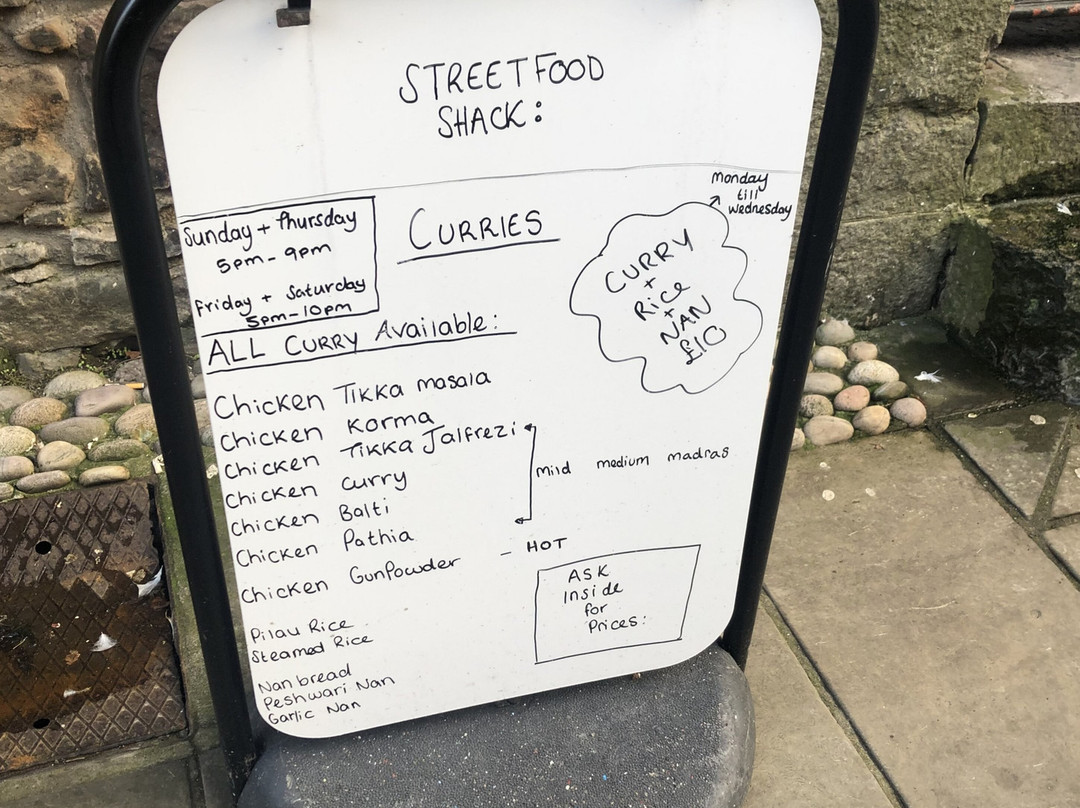 STREETFOOD
SHACK:
Sunday + Thursday
5pm - 9pm
Friday + Saturday
5pm-10pm
CURRIES
monday
till
wednesday
CURRY
+
Rice
+
NAN
£10
ALL CURRY Available:
Chicken Tikka masala
Chicken Korma
Chicken Tikka Jalfrezi
Chicken curry
Chicken Balti
Chicken Pathia
Chicken GunPowder
mild medium madras
- HOT
Pilau Rice
Steamed Rice
Nan bread
Peshwari Nan
Garlic Nan
ASK
Inside
for
Prices: